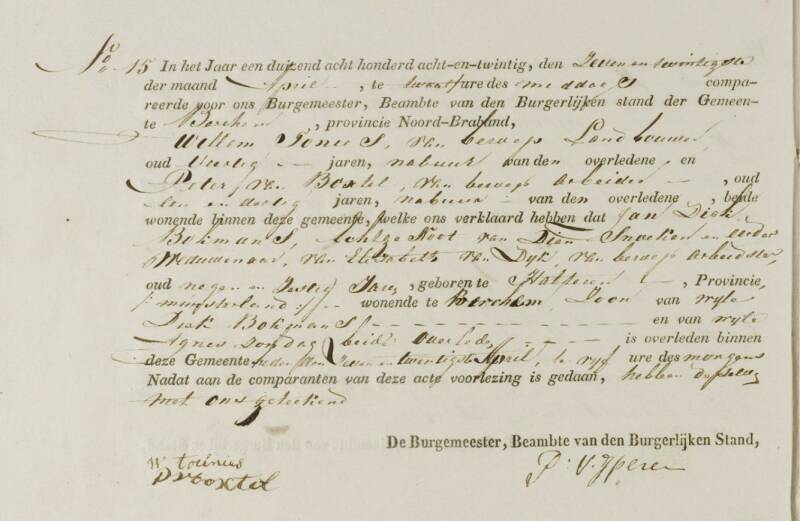 No 15 In het Jaar een duizend acht honderd acht-en-twintig, den Zeven en twintigste
der maand April, te twaalf ure des middags compa-
reerde voor ons Burgemeester, Beambte van den Burgerlijken stand der Gemeen-
te Berchem, provincie Noord-Braband,
Willem Tonies, van beroep Landbouwer,
oud Veertig jaren, nabuur van den overledene, en
Peter van Boxtel, van beroep arbeider, oud
een en dertig jaren, nabuur van den overledene, beide
wonende binnen deze gemeente, welke ons verklaard hebben dat Jan Dirk
Bokmans, Echtgenoot van Dien Snoeken en eerder
Weduwenaar, van Elizabeth van Dyk, van beroep arbeidster,
oud negen en Zestig Jaren, geboren te Halteren, Provincie
munsterland wonende te Berchem, Zoon van wyle
Dirk Bokmans en van wyle
Agnes sondag beide overleden is overleden binnen
deze Gemeente op den Zeven en twintigste April, te vyf ure des morgens
Nadat aan de comparanten van deze acte voorlezing is gedaan, hebben dezelve
met ons geteekend
De Burgemeester, Beambte van den Burgerlijken Stand,
W: toinius
P v Boxtel
P: V. Yperen